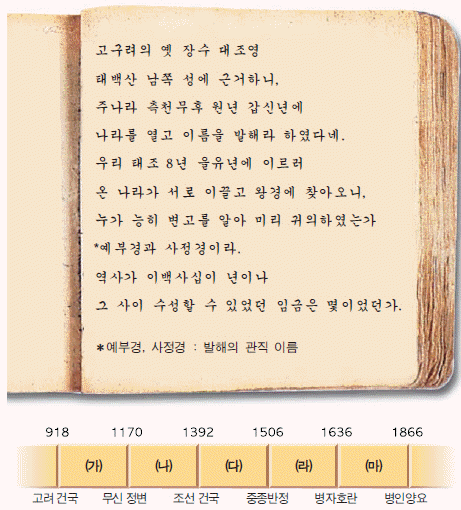 고구려의 옛 장수 대조영
태백산 남쪽 성에 근거하니,
주나라 측천무후 원년 갑신년에
나라를 열고 이름을 발해라 하였다네.
우리 태조 8년 을유년에 이르러
온 나라가 서로 이끌고 왕경에 찾아오니,
누가 능히 변고를 알아 미리 귀의하였는가
*예부경과 사정경이라.
역사가 이백사십이 년이나
그 사이 수성할 수 있었던 임금은 몇이었던가.
*예부경, 사정경 : 발해의 관직 이름
918 1170 1392 1506 1636 1866
(가) (나) (다) (라) (마)
고려 건국 무신 정변 조선 건국 중종반정 병자호란 병인양요